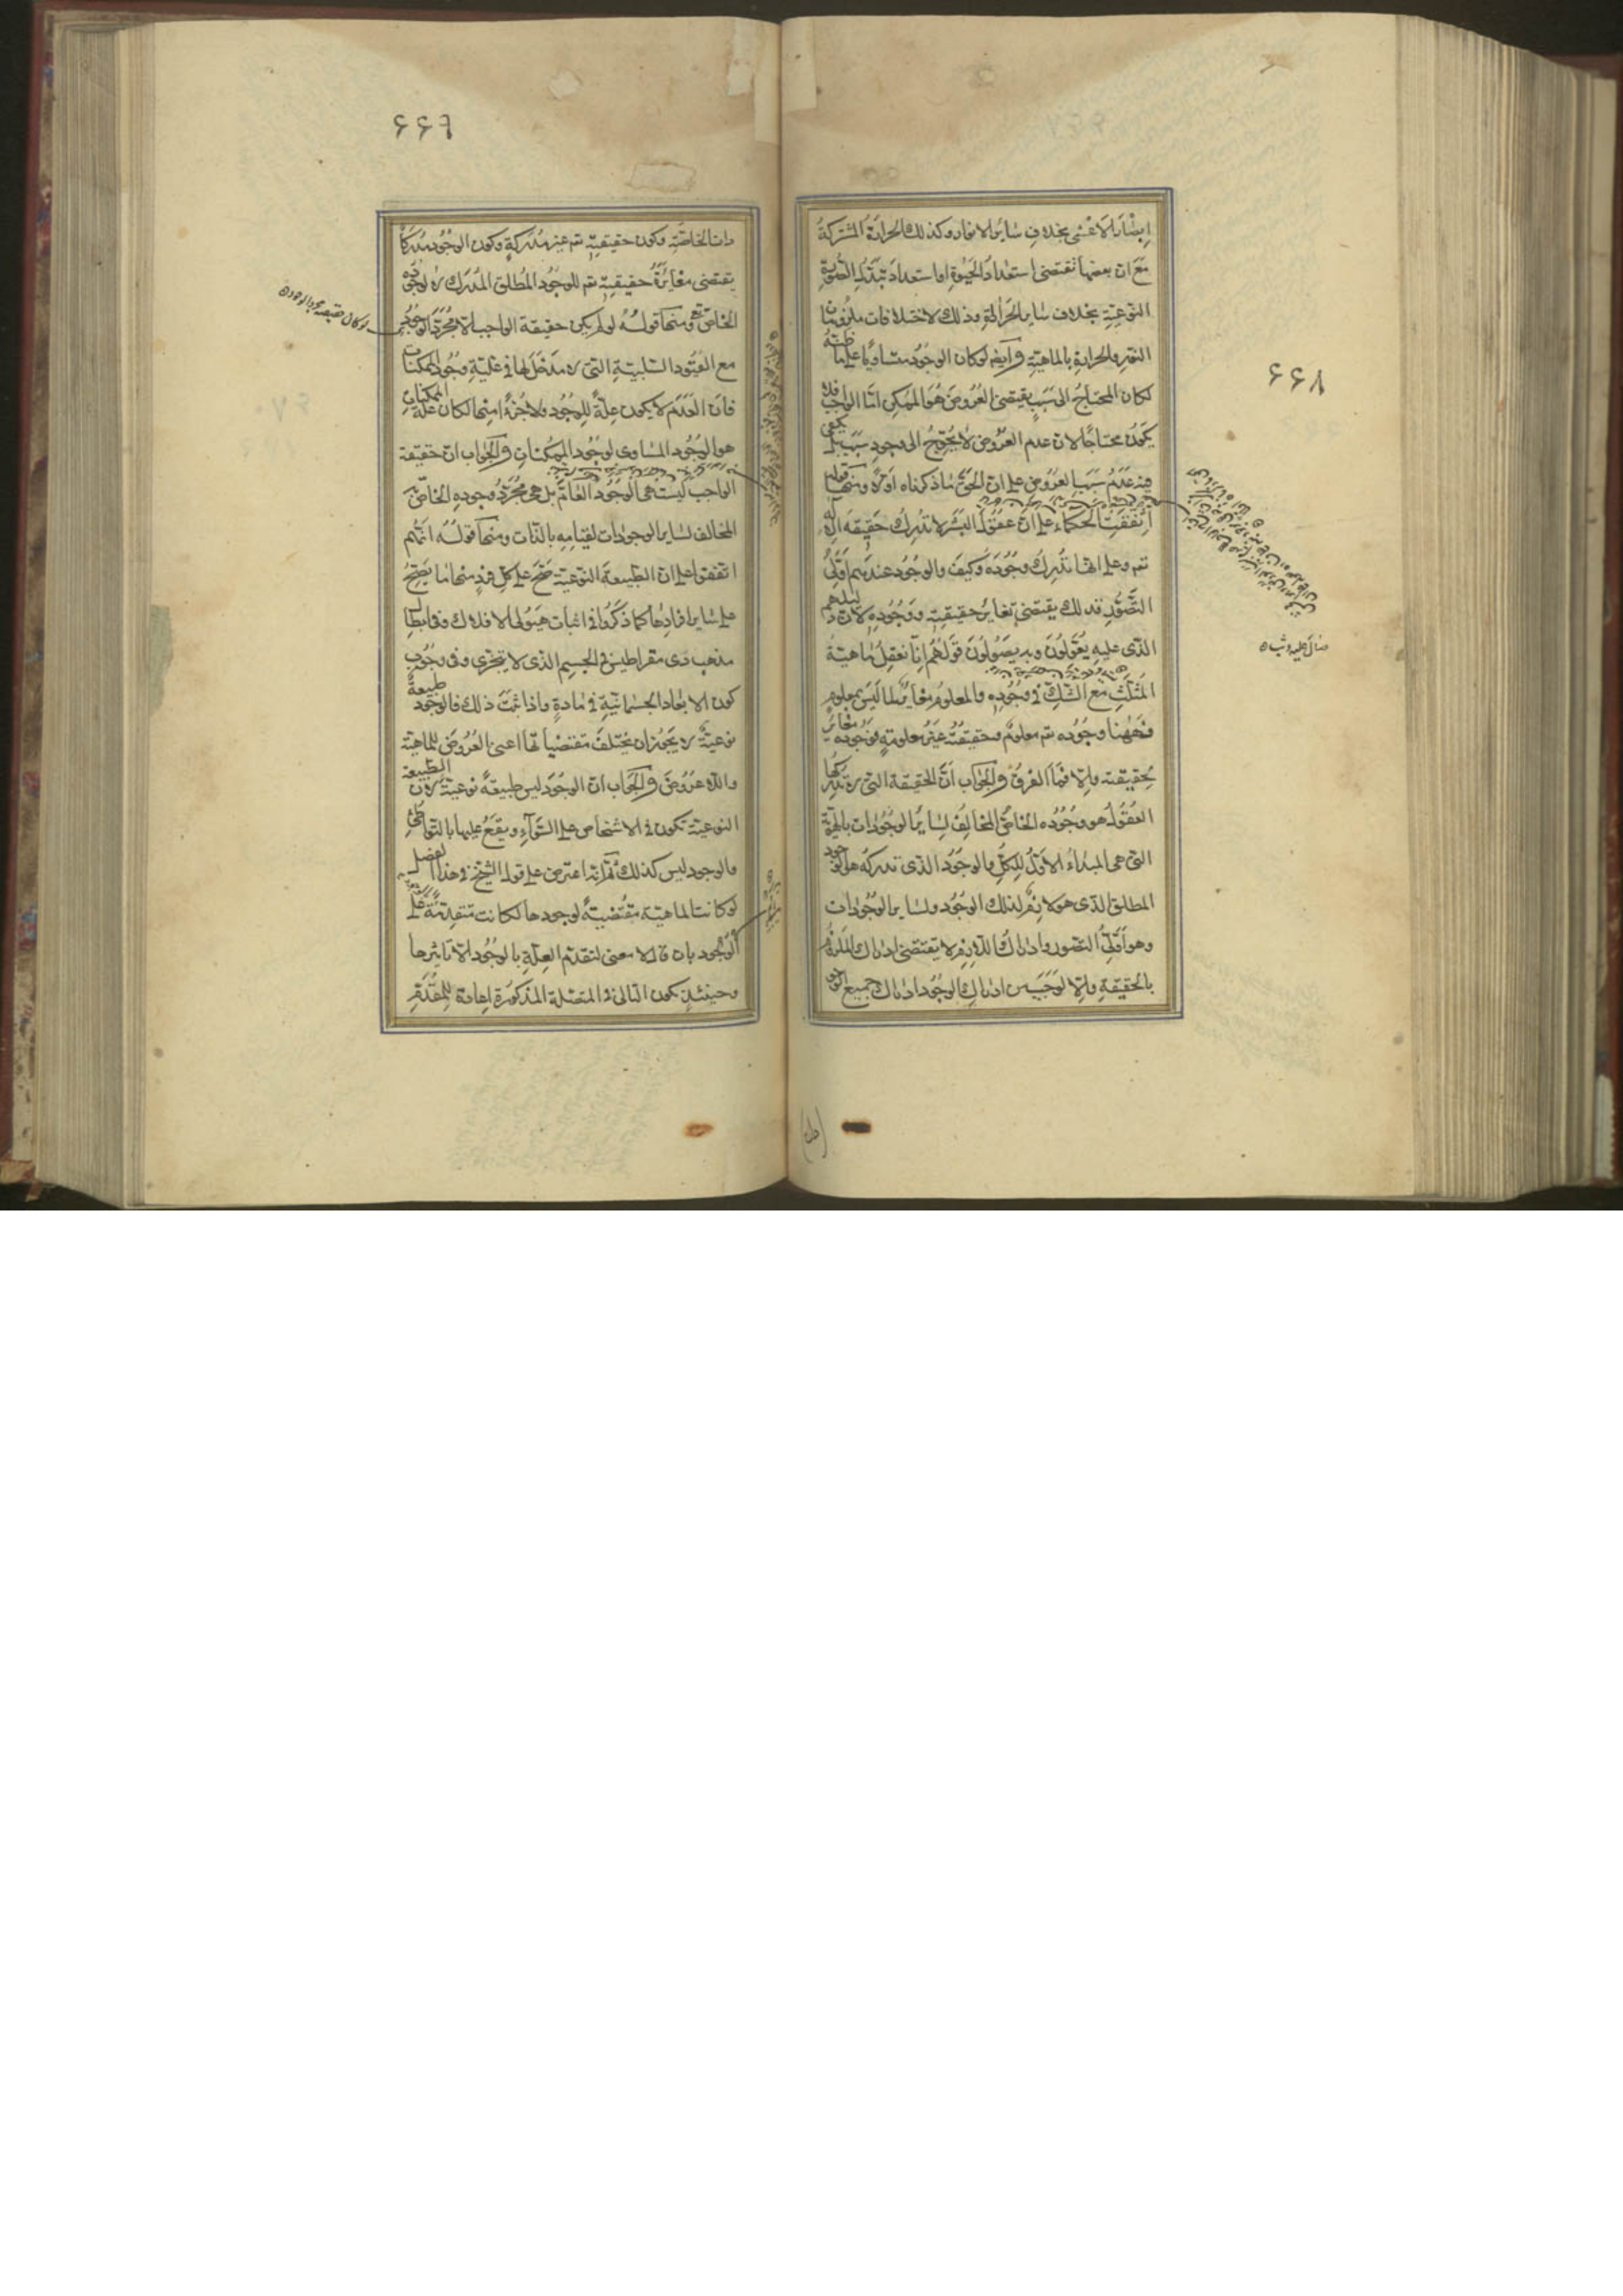 ٤٤٨
ابصار الاعشى بخلاف ساير الانوار وكذلك الحرارة المشتركة
مع ان بعضها تقتضى استعداد الحيوة او استعداد تبدل الصورة
النوعية بخلاف ساير الحرارة وذلك لاختلافات ملزومات
النور والحرارة بالماهية وايضا لو كان الوجود متساويا على ما ظنه
لكان المحتاج الى سبب يقتضى العروض هو الممكن اما الواجب فلا
يكون محتاجا لان عدم العروض لا يحوج الى وجود سبب بل يكفى
فيه عدم سبب العروض على ان الحق ما ذكرناه اولا ومنها قوله
اتفقت الحكماء على ان عقول البشر لا تدرك حقيقة الاله
تعم وعلى انها تدرك وجوده وكيف والوجود عندهم اولى
التصور فذلك يقتضى تغاير حقيقته ووجوده لان دليلهم
الذى عليه يعولون وبه يصولون قولهم انا نعقل ماهية
المثلث مع الشك فى وجوده والمعلوم مغاير لما ليس بمعلوم
فههنا وجوده تعم معلوم وحقيقته غير معلومة فوجوده مغاير
لحقيقته والا فما الفرق والجواب ان الحقيقة التى لا تدركها
العقول هو وجوده الخاص المخالف لساير الوجودات بالهوية
التى هى المبداء الاول للكل والوجود الذى تدركه هو الوجود
المطلق الذى هو لازم لذلك الوجود ولساير الوجودات
وهو اولى التصور وادراك اللازم لا يقتضى ادراك الملزوم
بالحقيقة والا لوجب من ادراك الوجود ادراك جميع الوجو
٤٤٦
دات الخاصة وكون حقيقته تعم غير مدركة وكون الوجود مدركا
يقتضى مغايرة حقيقته تعم للوجود المطلق المدرك لا لوجوده
الخاص ومنها قوله لو لم يكن حقيقة الواجب الا مجرد الوجود
مع القيود السلبية التى لا مدخل لها فى علية وجود الممكنات
فان العدم لا يكون علة للوجود ولا جزءا منها لكان علة الممكنات
هو الوجود المساوى لوجود الممكنات والجواب ان حقيقة
الواجب ليست هى الوجود العام بل هى مجرد وجوده الخاص
المخالف لساير الوجودات لقيامه بالذات ومنها قوله انهم
اتفقوا على ان الطبيعة النوعية صح على كل فرد منها ما يصح
على ساير افرادها كما ذكروا فى اثبات هيولى الافلاك وفى ابطال
مذهب ذى مقراطيس فى الجسم الذى لا يتجزى وفى وجوب
كون الابعاد الجسمانية فى مادة واذا ثبت ذلك فالوجود طبيعة
نوعية لا يجوز ان يختلف مقتضياتها اعنى العروض للماهية
واللاعروض والجواب ان الوجود ليس طبيعة نوعية لان الطبيعة
النوعية تكون فى الاشخاص على السواء ويقع عليها بالتواطئ
والوجود ليس كذلك ثم انه اعترض على قول الشيخ فى هذا الفصل
لو كانت الماهية مقتضية لوجودها لكانت متقدمة على
الوجود بان قال لا معنى لتقدم العلة بالوجود الا تاثيرها
وحينئذ يكون التالى فى المتصلة المذكورة اعادة للمقدم